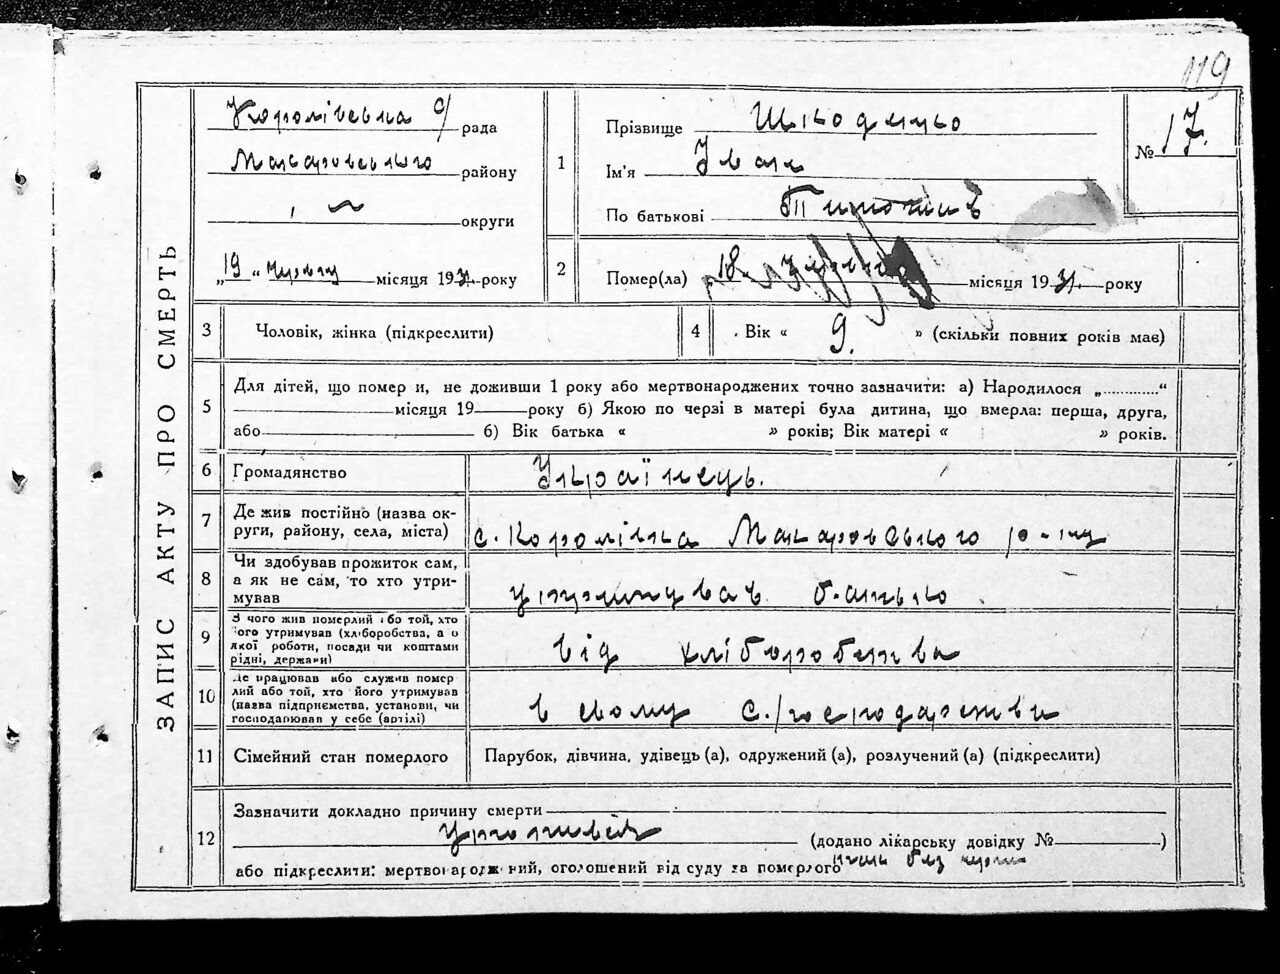 119
ЗАПИС АКТУ ПРО СМЕРТЬ
Королівська с/ рада
Макаровського району
округи
„19“ червня місяця 1931 року
1
Прізвище Шкоденко
Ім'я Іван
По батькові
№ 17.
2
Помер(ла) 18 червня місяця 1931 року
3 Чоловік, жінка (підкреслити)
4 Вік « 9. » (скільки повних років має)
5
Для дітей, що помер и, не доживши 1 року або мертвонароджених точно зазначити: а) Народилося „..........“
місяця 19 року б) Якою по черзі в матері була дитина, що вмерла: перша, друга,
або б) Вік батька « » років; Вік матері « » років.
6 Громадянство Українець.
7
Де жив постійно (назва ок-
руги, району, села, міста) с. Королівка Макаровського р-ну
8
Чи здобував прожиток сам,
а як не сам, то хто утри-
мував утримував батько
9
З чого жив померлий або той, хто
його утримував (хліборобства, а о
якої роботи, посади чи коштами
рідні, держави) від хліборобства
10
Де працював або служив помер
лий або той, хто його утримував
(назва підприємства, установи, чи
господарював у себе (артілі) в свому с./господарстві
11 Сімейний стан померлого Парубок, дівчина, удівець (а), одружений (а), розлучений (а) (підкреслити)
12
Зазначити докладно причину смерти
утопився (додано лікарську довідку № )
або підкреслити: мертвонароджений, оголошений від суду за померлого